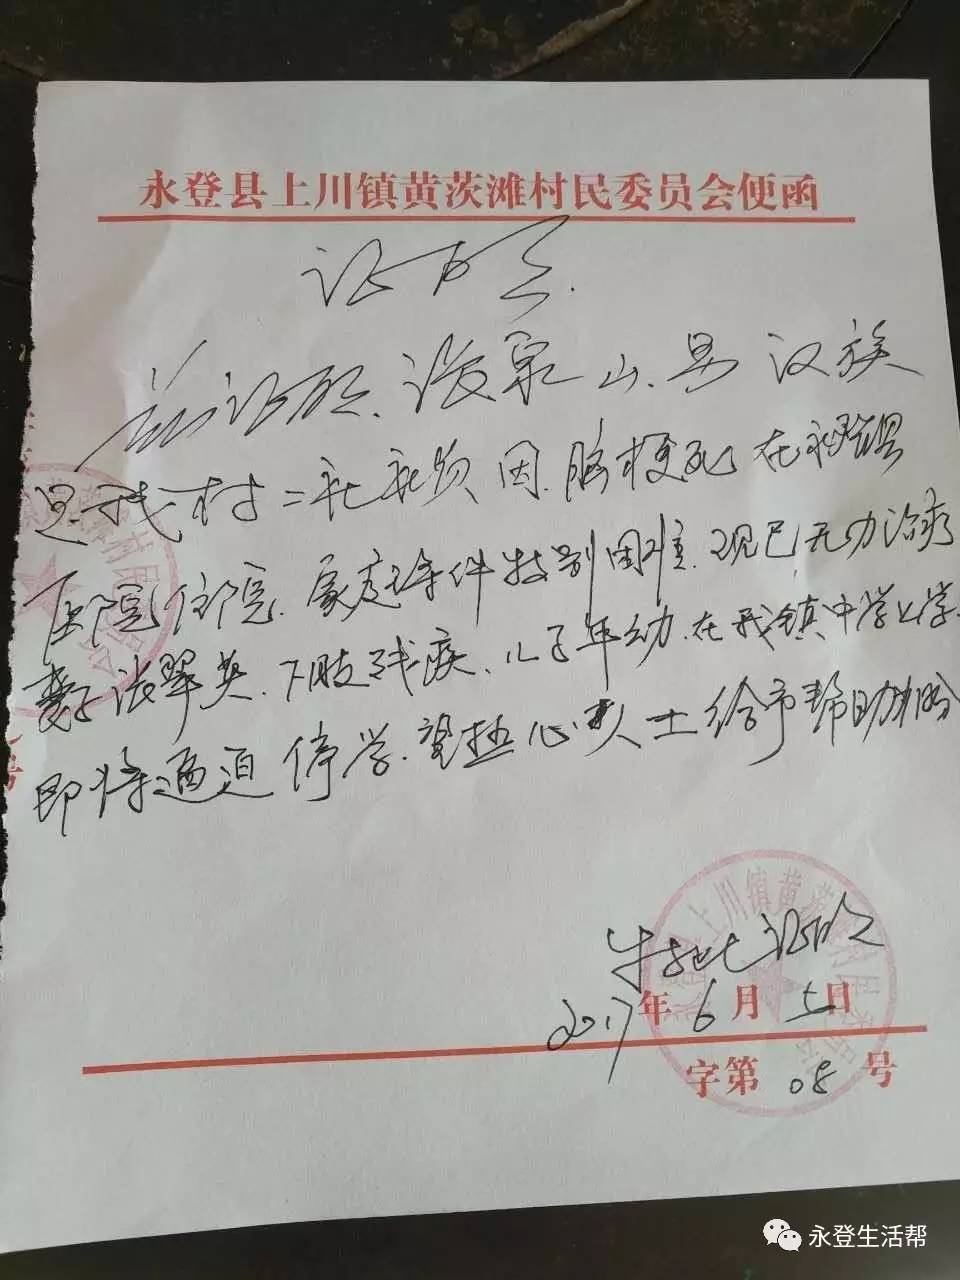 永登县上川镇黄茨滩村民委员会便函
证明
兹证明、泉山、男 汉族
是我村二社社员 因脑梗死 在永登县
医院住院、家庭条件特别困难、现已无力治疗
妻子张翠英、下肢残疾、儿子年幼、在我镇中学上学、
即将逼迫停学、望热心人士给予帮助
特此证明
2017年6月5日
字第08号
永登生活帮